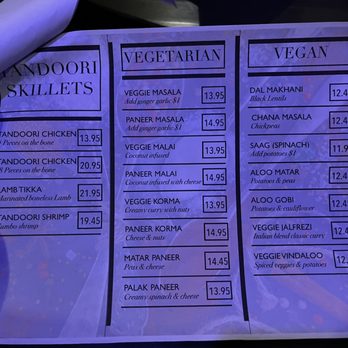 TANDOORI
SKILLETS
TANDOORI CHICKEN 13.95
Pieces on the bone
TANDOORI CHICKEN 20.95
8 Pieces on the bone
LAMB TIKKA 21.95
Marinated boneless Lamb
TANDOORI SHRIMP 19.45
Jumbo shrimp
VEGETARIAN
VEGGIE MASALA 13.95
Add ginger garlic $1
PANEER MASALA 14.95
Add ginger garlic $1
VEGGIE MALAI 13.95
Coconut infused
PANEER MALAI 14.95
Coconut infused with cheese
VEGGIE KORMA 13.95
Creamy curry with nuts
PANEER KORMA 14.95
Cheese & nuts
MATAR PANEER 14.45
Peas & cheese
PALAK PANEER 13.95
Creamy spinach & cheese
VEGAN
DAL MAKHANI 12.4
Black Lentils
CHANA MASALA 12.4
Chickpeas
SAAG (SPINACH) 11.9
Add ginger garlic $1
ALOO MATAR 12.4
Potatoes & peas
ALOO GOBI 12.4
Potatoes & cauliflower
VEGGIE JALFREZI 12.4
Italian blend classic curry
VEGGIE VINDALOO 12.4
Spiced veggies & potatoes